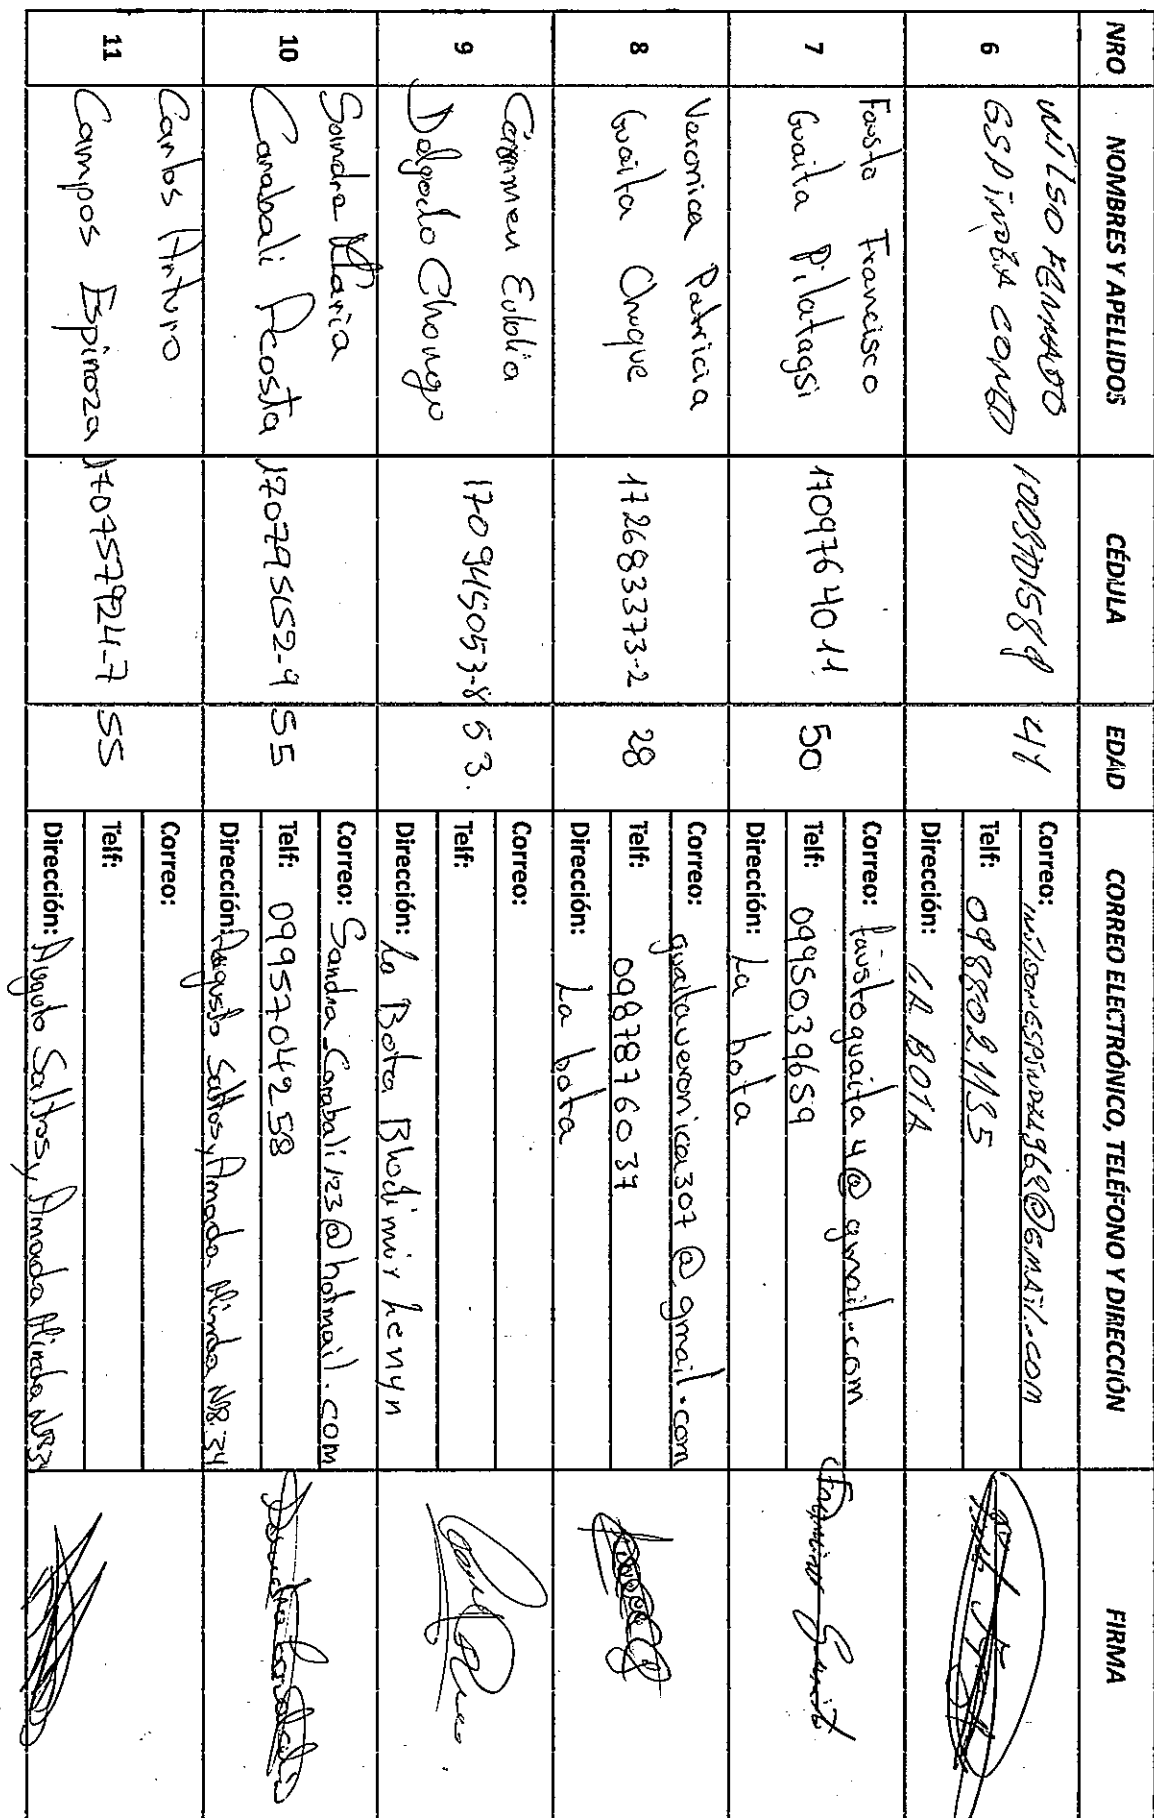 NRO NOMBRES Y APELLIDOS CÉDULA EDAD CORREO ELECTRÓNICO, TELÉFONO Y DIRECCIÓN FIRMA
6
41
Correo:
Telf: 0988021135
Dirección: LA BOTA
7
Fausto Francisco
Guaita Pilatagsi
1709764011
50
Correo: faustoguaita4@gmail.com
Telf: 0995039659
Dirección: La bota
8
Veronica Patricia
Guaita
172683373-2
28
guaitaveronica307@gmail.com
Telf: 0987876037
Dirección: La bota
9
Carmen Eulolia
Delgado Chango
170945053-8
53.
Correo:
Telf:
Dirección: La Bota Bladimir Lenyn
10
Sandra Maria
Carabali Acosta
170795152-9
55
Correo: Sandra_Carabali123@hotmail.com
Telf: 0995704258
Dirección: Augusto Saltos y Amada N18.34
11
Carlos Arturo
Campos Espinoza
170757924-7
55
Correo:
Telf:
Dirección: Saltos y Amada